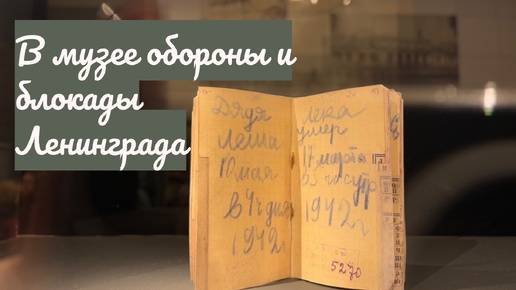 В музее обороны и
блокады
Ленинграда
Дядя
Леша
10 мая
в 4ч дня
1942г
Лека
умер
17 марта
в 5 часутр
1942г
5270